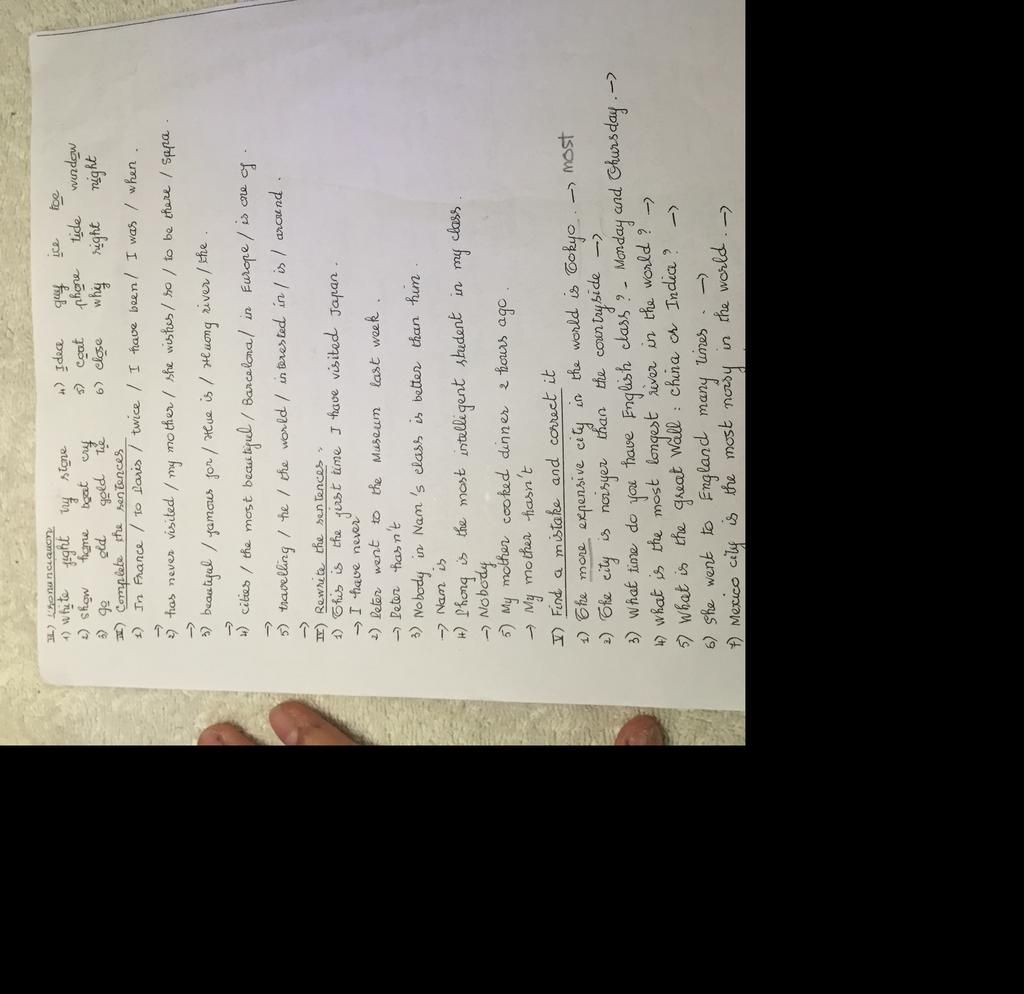 II) Pronunciation
1) White fight try stone
2) show home boat cry
3) go old gold tie
4) Idea guy ice toe
5) coat phone tide window
6) close why right night
III) Complete the sentences
1) In France / to Paris / twice / I have been / I was / when .
→
2) has never visited / my mother / she wishes / so / to be there / Sapa .
→
3) beautiful / famous for / Hue is / Huong river / the .
→
4) cities / the most beautiful / Barcelona / in Europe / is one of .
→
5) travelling / he / the world / interested in / is / around .
→
IV) Rewrite the sentences :
1) This is the first time I have visited Japan .
→ I have never
2) Peter went to the Museum last week .
→ Peter hasn't
3) Nobody in Nam's class is better than him .
→ Nam is
4) Phong is the most intelligent student in my class .
→ Nobody
5) My mother cooked dinner 2 hours ago .
→ My mother hasn't
V) Find a mistake and correct it
1) The more expensive city in the world is Tokyo . → most
2) The city is noisyer than the countryside →
3) What time do you have English class ? - Monday and Thursday . →
4) What is the most longest river in the world ? →
5) What is the great Wall : china or India ? →
6) She went to England many times . →
7) Mexico city is the most noisy in the world . →